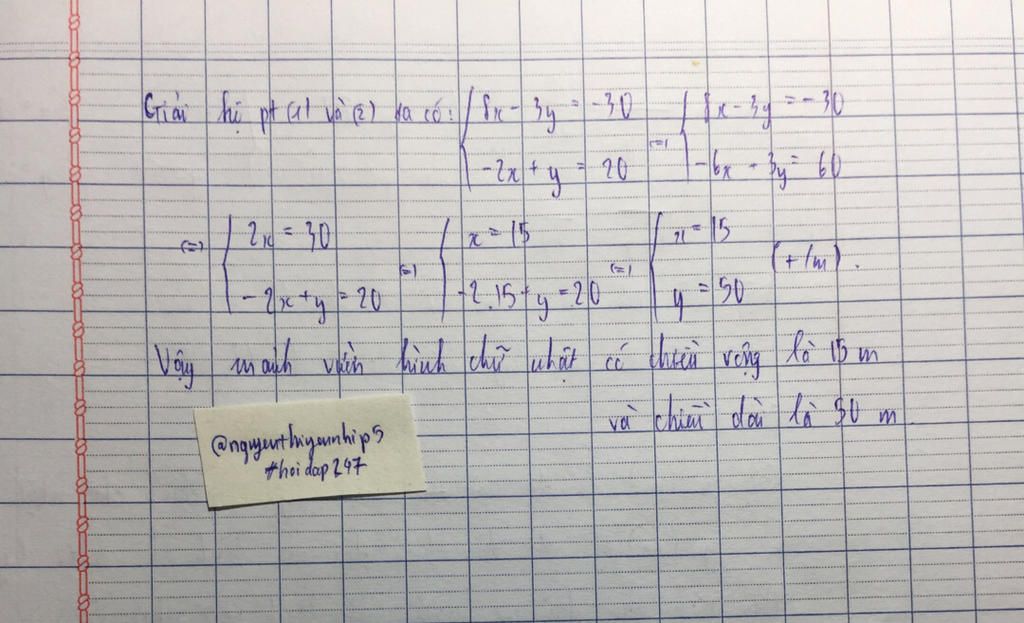 Giải hệ pt (1) và (2) ta có: { 8x - 3y = -30 (=) { 8x - 3y = -30
-2x + y = 20 -6x + 3y = 60
(=) { 2x = 30 (=) { x = 15 (=) { x = 15 (t/m).
-2x + y = 20 -2.15 + y = 20 y = 50
Vậy mảnh vườn hình chữ nhật có chiều rộng là 15 m
và chiều dài là 50 m
@nguyenthiyennhip5
#hoidap247